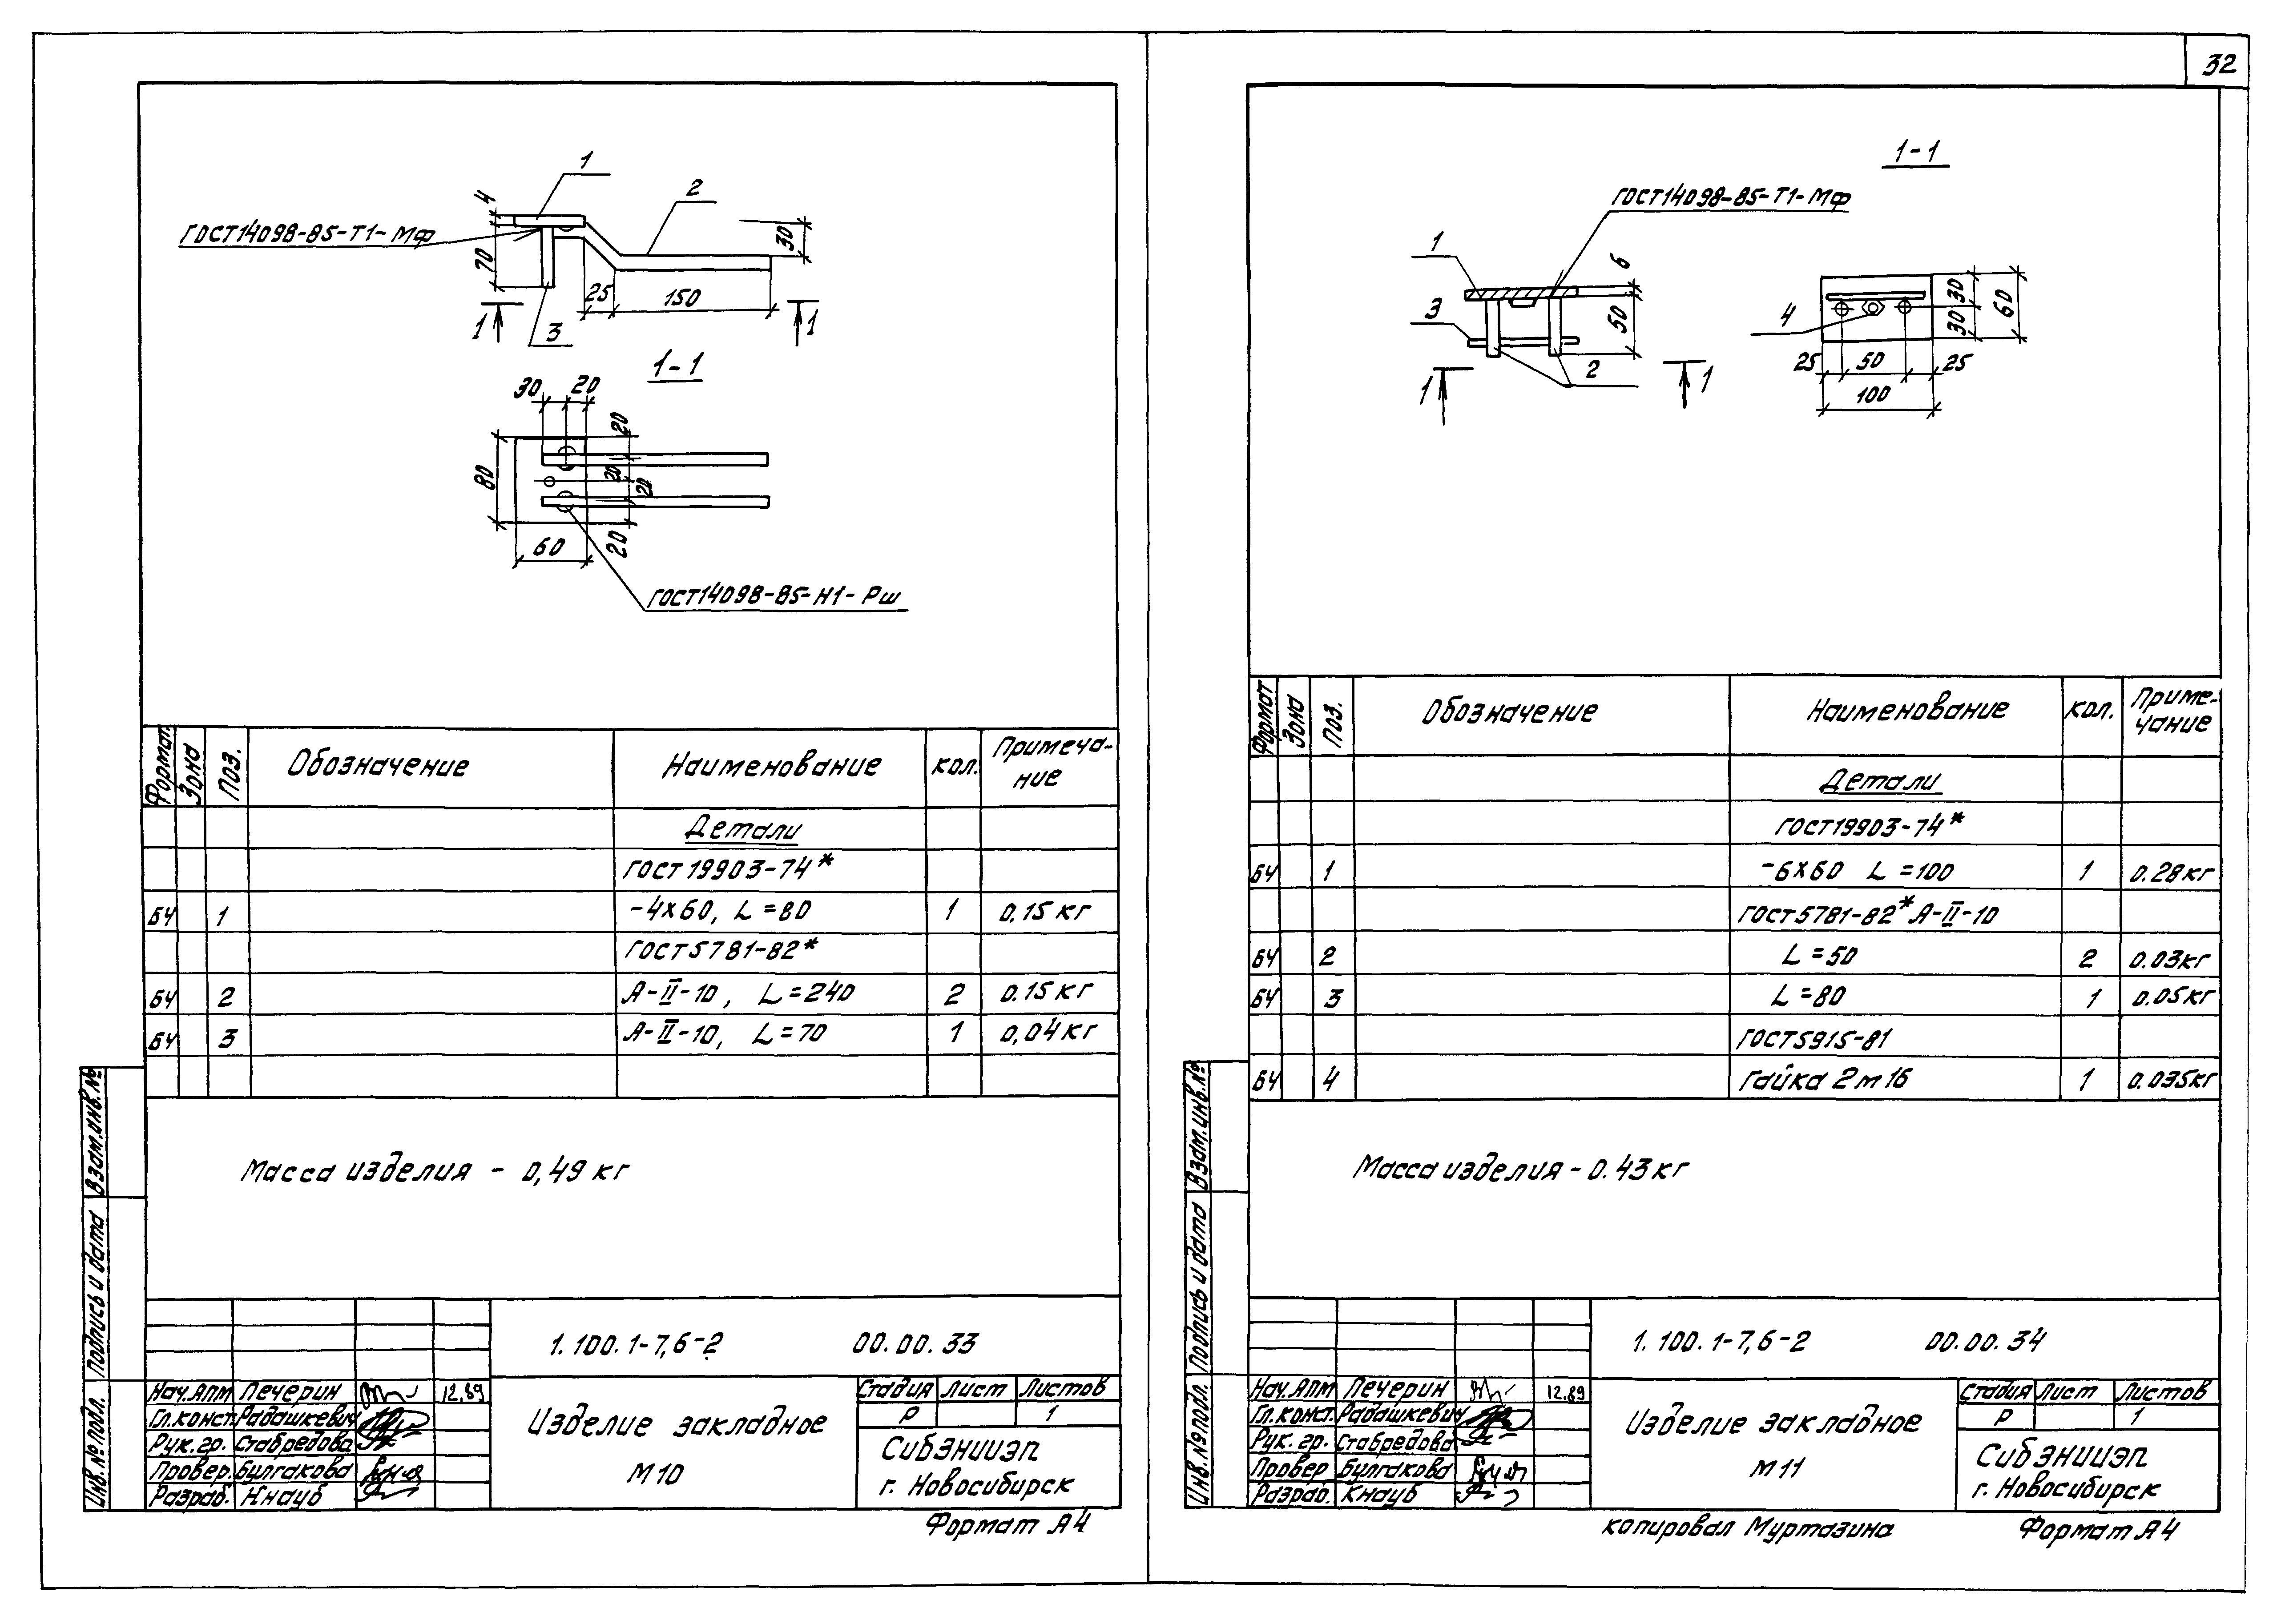 32
1
2
4
70
ГОСТ14098-85-Т1-Мф
30
25
150
1
1
3
1-1
30
20
20
80
20
20
20
60
ГОСТ14098-85-Н1-Рш
Формат
Зона
Поз.
Обозначение
Наименование
кол.
Примеча-
ние
Детали
ГОСТ 19903-74*
БЧ 1 -4х60, L=80 1 0,15 кг
ГОСТ5781-82*
БЧ 2 А-II-10, L=240 2 0.15 кг
БЧ 3 А-II-10, L=70 1 0,04 кг
Масса изделия - 0,49 кг
Взам.инв.№
Подпись и дата
Инв.№ подл.
1.100.1-7,6-2 00.00.33
Нач.АПМ Печерин 12.89
Гл.конст. Радашкевич
Рук.гр. Стабредова
Провер. Булгакова
Разраб. Кнауб
Изделие закладное
М10
Стадия Лист Листов
Р 1
СибЗНИИЭП
г. Новосибирск
Формат А4
1-1
ГОСТ14098-85-Т1-Мф
1
6
50
3
2
1
1
4
30
30
60
25
50
25
100
Формат
Зона
Поз.
Обозначение
Наименование
кол.
Приме-
чание
Детали
ГОСТ19903-74*
БЧ 1 -6х60 L=100 1 0.28кг
ГОСТ5781-82* А-II-10
БЧ 2 L=50 2 0.03кг
БЧ 3 L=80 1 0.05кг
ГОСТ5915-81
БЧ 4 Гайка 2м16 1 0.035кг
Масса изделия - 0.43 кг
Взам.инв.№
Подпись и дата
Инв.№подл.
1.100.1-7,6-2 00.00.34
Нач.АПМ Печерин 12.89
Гл.конст. Радашкевич
Рук.гр. Стабредова
Провер Булгакова
Разраб. Кнауб
Изделие закладное
М11
Стадия Лист Листов
Р 1
СибЗНИИЭП
г. Новосибирск
копировал Муртазина
Формат А4